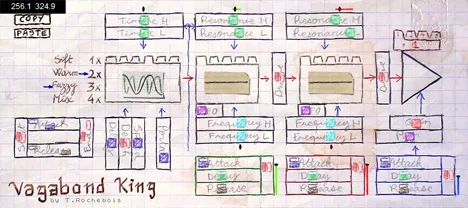 256.1 324.9
COPY
PASTE
Timbre H
Timbre L
Resonance H
Resonance L
Resonance H
Resonance L
Soft 1x
Warm 2x
Fuzzy 3x
Mix 4x
Drive
Drive
1
LFO
Attack
Release
Frequency H
Frequency L
Frequency H
Frequency L
Attack
Decay
Release
Attack
Decay
Release
Attack
Decay
Release
Vagabond King
by T.Rochebois